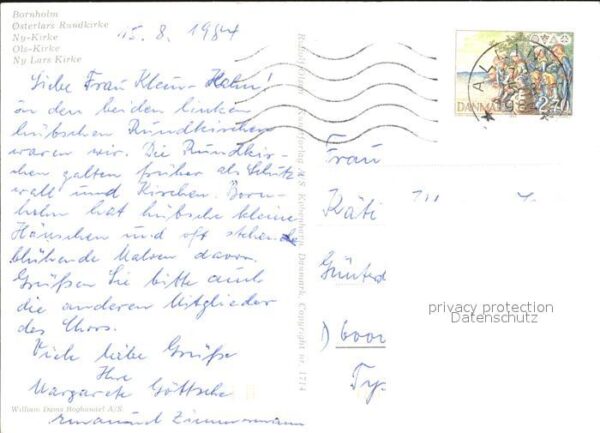 Bornholm
Østerlars Rundkirke
Ny-Kirke
Ols-Kirke
Ny Lars Kirke
15.8.1984
Liebe Frau Klein-Helm!
in den beiden linken
hübschen Rundkirchen
waren wir. Die Rundkir-
chen galten früher als Schutz
wall und Kirchen. Born-
holm hat hübsche kleine
Häuschen und oft stehen
blühende Malven davor.
Grüßen Sie bitte auch
die anderen Mitglieder
des Chors.
Viele liebe Grüße
Ihre
Margarete Göttsche
Zimmermann
William Dams Boghandel A/S
Kunstforlag A/S København, Danmark. Copyright nr. 1214
DANMARK
Frau
Käti
Günterst
privacy protection
Datenschutz